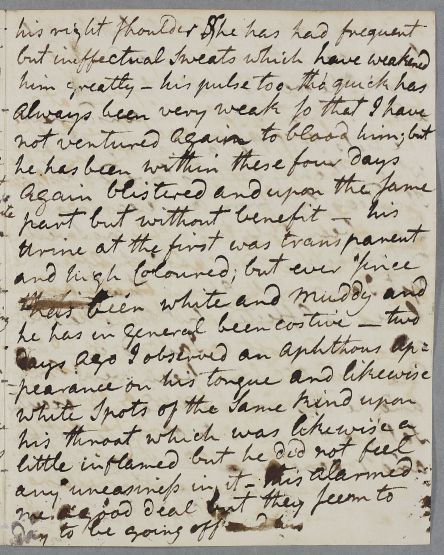 his right shoulder & he has had frequent
but ineffectual sweats which have weakened
him greatly – his pulse too tho' quick has
always been very weak so that I have
not ventured again to blood him; but
he has been within these four days
again blistered and upon the same
part but without benefit – his
urine at the first was transparent
and high Coloured; but ever since
has been white and muddy and
he has in general been costive – two
days ago I observed an aphthous ap=
=pearance on his tongue and likewise
white spots of the same kind upon
his throat which was likewise a
little inflamed but he did not feel
any uneasiness in it – this alarmed
me a good deal but they seem to
day to be going off